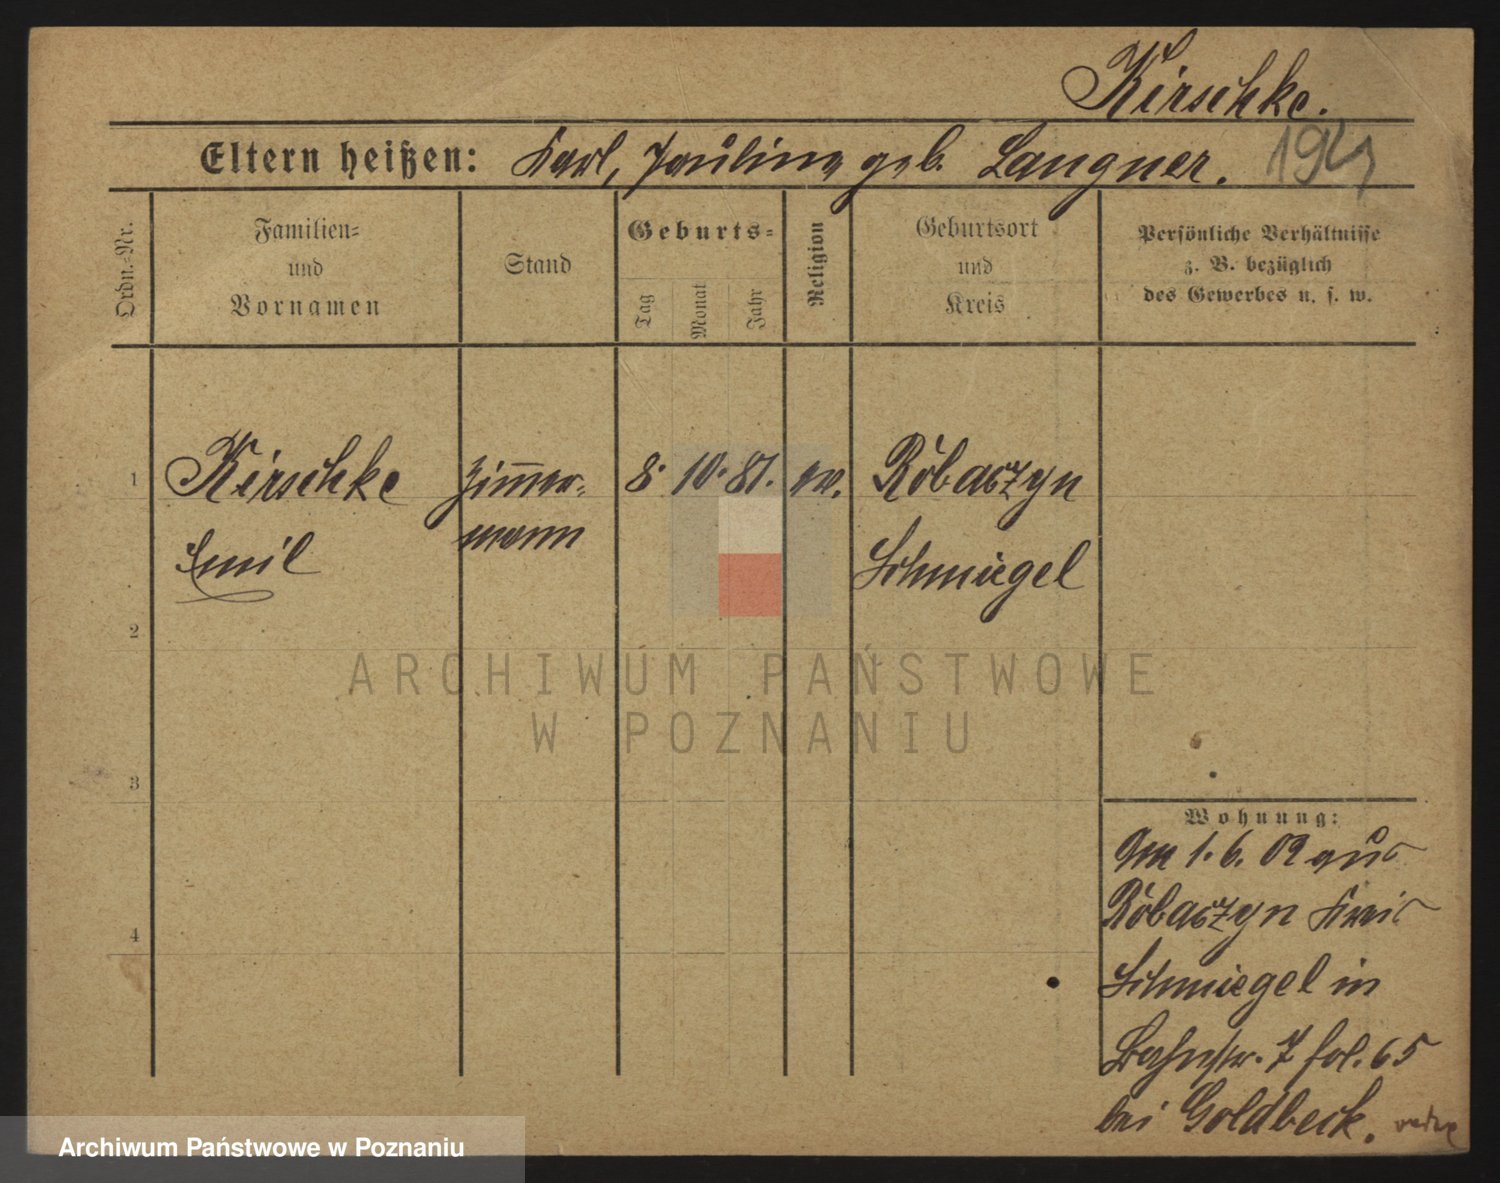 Kirschke.
Eltern heißen: Karl, Pauline geb. Langner.
Ordn.-Nr.
Familien-
und
Vornamen
Stand
Geburts-
Tag
Monat
Jahr
Religion
Geburtsort
und
Kreis
Persönliche Verhältnisse
z. B. bezüglich
des Gewerbes u. s. w.
1 Kirschke Zimmer- 8. 10. 81. ev. Robaczyn
Emil mann Schmiegel
2
3
4
Wohnung:
Am 1. 6. 02 aus
Robaczyn Kreis
Schmiegel in
7 fol. 65
bei Goldbeck.
ARCHIWUM PAŃSTWOWE
W POZNANIU
Archiwum Państwowe w Poznaniu